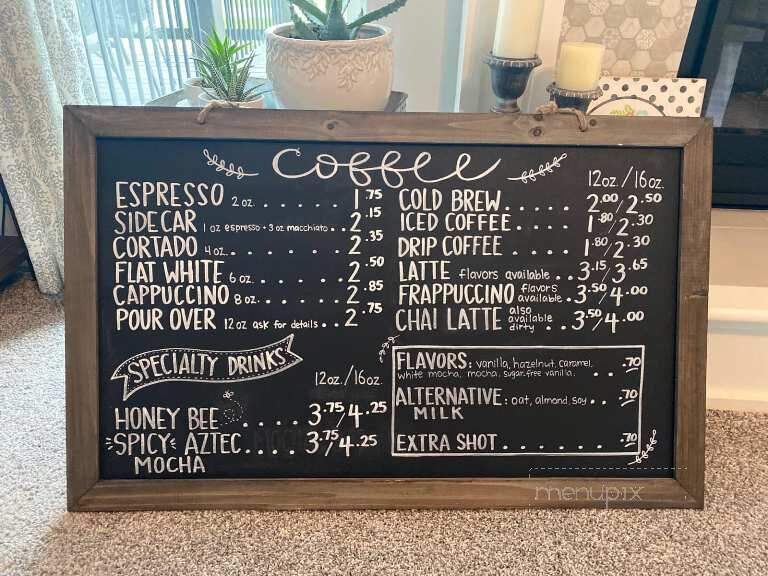 Coffee
ESPRESSO 2 oz. . . . . . . 1.75
SIDECAR 1 oz espresso + 3 oz macchiato . . 2.15
CORTADO 4 oz. . . . . . . 2.35
FLAT WHITE 6 oz. . . . . . . 2.50
CAPPUCCINO 8 oz. . . . . . . 2.85
POUR OVER 12 oz ask for details . . 2.75
12oz./16oz.
COLD BREW. . . . . 2.00/2.50
ICED COFFEE. . . . . 1.80/2.30
DRIP COFFEE . . . . 1.80/2.30
LATTE flavors available . . 3.15/3.65
FRAPPUCCINO flavors available . 3.50/4.00
CHAI LATTE also available dirty . . 3.50/4.00
SPECIALTY DRINKS
12oz./16oz.
HONEY BEE . . . . 3.75/4.25
SPICY AZTEC. . . . 3.75/4.25
MOCHA
FLAVORS: vanilla, hazelnut, caramel,
white mocha, mocha, sugar-free vanilla. . . .70
ALTERNATIVE: oat, almond, soy . . .70
MILK
EXTRA SHOT . . . . . . .70
menupix